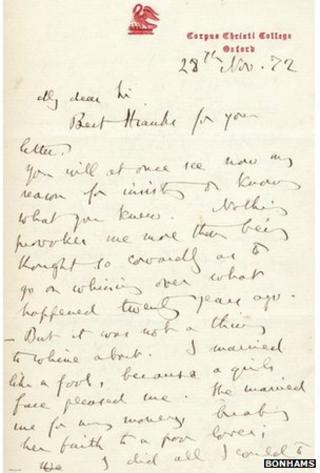 Corpus Christi College
Oxford
28th Nov. 72
My dear Sir.
Best thanks for your
letter.
You will at once see now my
reason for insisting on knowing
what you knew. Nothing
provokes me more than being
thought so cowardly as to
go on whining over what
happened twenty years ago.
- But it was not a thing
to whine about. I married
like a fool, because a girls
face pleased me. She married
me for my money breaking
her faith to a poor lover;
I did all I could to
BONHAMS